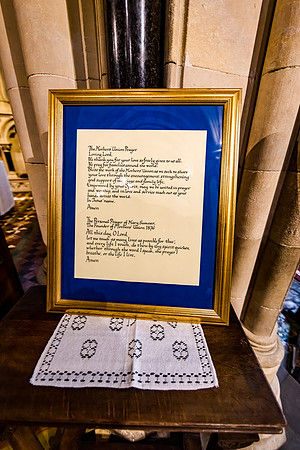 The Mothers' Union Prayer
Loving Lord,
We thank you for your love so freely given to us all.
We pray for families around the world.
Bless the work of the Mothers' Union as we seek to share
your love through the encouragement, strengthening
and support of marriage and family life.
Empowered by your Spirit, may we be united in prayer
and worship, and in love and service reach out as your
hands across the world.
In Jesus' name.
Amen
The Personal Prayer of Mary Sumner
The Founder of Mothers' Union 1876
All this day, O Lord,
let me touch as many lives as possible for thee;
and every life I touch, do thou by thy spirit quicken,
whether through the word I speak, the prayer I
breathe, or the life I live.
Amen